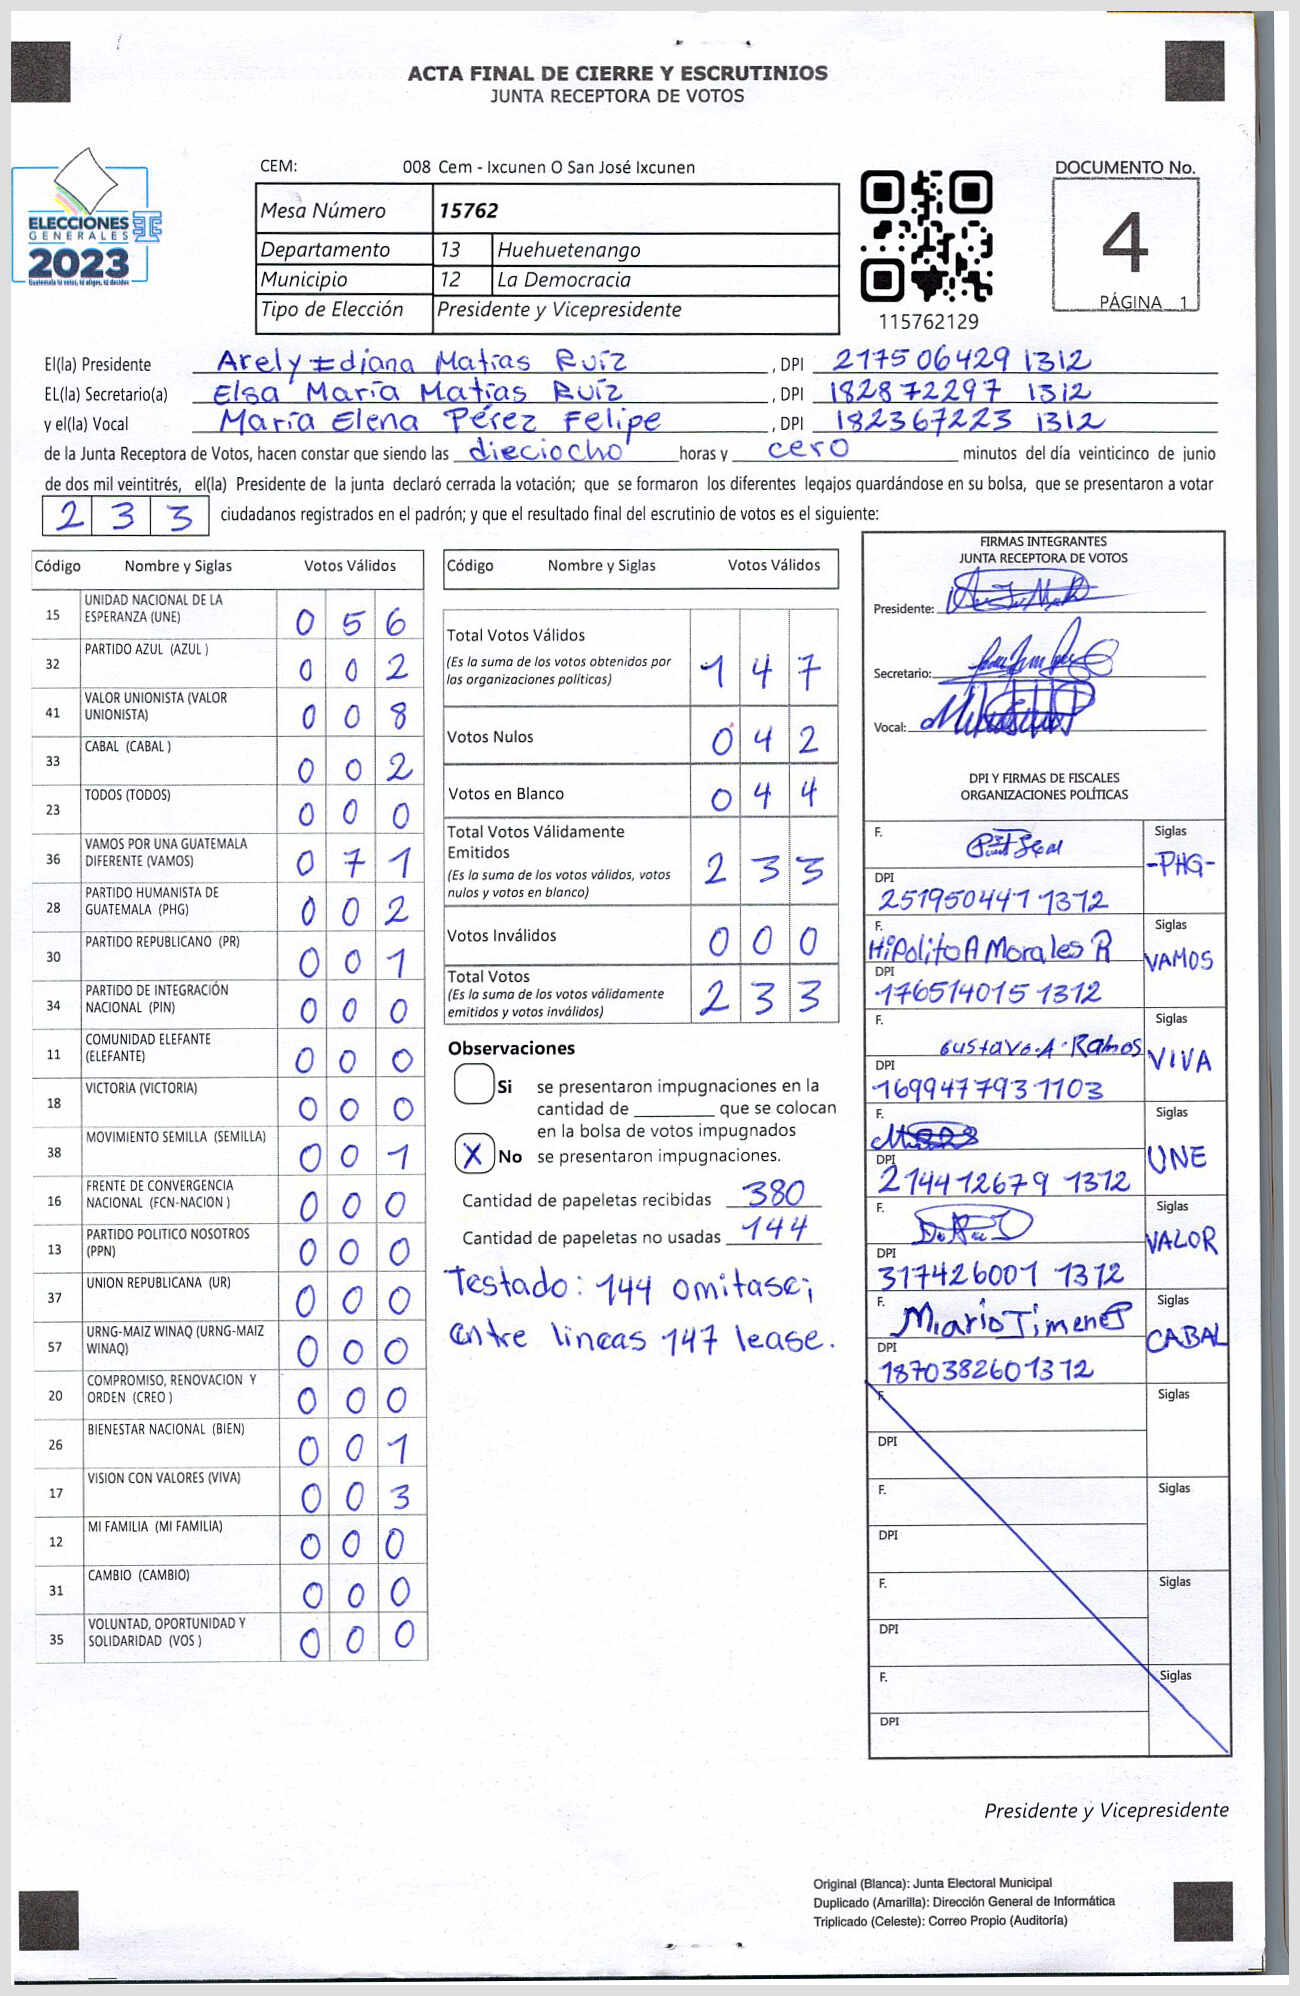 ACTA FINAL DE CIERRE Y ESCRUTINIOS
JUNTA RECEPTORA DE VOTOS
ELECCIONES
GENERALES
2023
Guatemala tú votas, tú eliges, tú decides
CEM: 008 Cem - Ixcunen O San José Ixcunen
Mesa Número 15762
Departamento 13 Huehuetenango
Municipio 12 La Democracia
Tipo de Elección Presidente y Vicepresidente
115762129
DOCUMENTO No.
4
PÁGINA 1
El(la) Presidente Arely Idiana Matías Ruíz , DPI 217506429 1312
EL(la) Secretario(a) Elsa María Matías Ruíz , DPI 182872297 1312
y el(la) Vocal María Elena Pérez Felipe , DPI 182367223 1312
de la Junta Receptora de Votos, hacen constar que siendo las dieciocho horas y cero minutos del día veinticinco de junio
de dos mil veintitrés, el(la) Presidente de la junta declaró cerrada la votación; que se formaron los diferentes legajos guardándose en su bolsa, que se presentaron a votar
2 3 3 ciudadanos registrados en el padrón; y que el resultado final del escrutinio de votos es el siguiente:
Código Nombre y Siglas Votos Válidos
15 UNIDAD NACIONAL DE LA ESPERANZA (UNE) 0 5 6
32 PARTIDO AZUL (AZUL ) 0 0 2
41 VALOR UNIONISTA (VALOR UNIONISTA) 0 0 8
33 CABAL (CABAL ) 0 0 2
23 TODOS (TODOS) 0 0 0
36 VAMOS POR UNA GUATEMALA DIFERENTE (VAMOS) 0 7 1
28 PARTIDO HUMANISTA DE GUATEMALA (PHG) 0 0 2
30 PARTIDO REPUBLICANO (PR) 0 0 1
34 PARTIDO DE INTEGRACIÓN NACIONAL (PIN) 0 0 0
11 COMUNIDAD ELEFANTE (ELEFANTE) 0 0 0
18 VICTORIA (VICTORIA) 0 0 0
38 MOVIMIENTO SEMILLA (SEMILLA) 0 0 1
16 FRENTE DE CONVERGENCIA NACIONAL (FCN-NACION ) 0 0 0
13 PARTIDO POLITICO NOSOTROS (PPN) 0 0 0
37 UNION REPUBLICANA (UR) 0 0 0
57 URNG-MAIZ WINAQ (URNG-MAIZ WINAQ) 0 0 0
20 COMPROMISO, RENOVACION Y ORDEN (CREO ) 0 0 0
26 BIENESTAR NACIONAL (BIEN) 0 0 1
17 VISION CON VALORES (VIVA) 0 0 3
12 MI FAMILIA (MI FAMILIA) 0 0 0
31 CAMBIO (CAMBIO) 0 0 0
35 VOLUNTAD, OPORTUNIDAD Y SOLIDARIDAD (VOS ) 0 0 0
Código Nombre y Siglas Votos Válidos
Total Votos Válidos 1 4 7
(Es la suma de los votos obtenidos por
las organizaciones políticas)
Votos Nulos 0 4 2
Votos en Blanco 0 4 4
Total Votos Válidamente
Emitidos 2 3 3
(Es la suma de los votos válidos, votos
nulos y votos en blanco)
Votos Inválidos 0 0 0
Total Votos 2 3 3
(Es la suma de los votos válidamente
emitidos y votos inválidos)
Observaciones
Si se presentaron impugnaciones en la
cantidad de ________ que se colocan
en la bolsa de votos impugnados
X No se presentaron impugnaciones.
Cantidad de papeletas recibidas 380
Cantidad de papeletas no usadas 144
Testado: 144 omitase;
entre lineas 147 lease.
FIRMAS INTEGRANTES
JUNTA RECEPTORA DE VOTOS
Presidente:
Secretario:
Vocal:
DPI Y FIRMAS DE FISCALES
ORGANIZACIONES POLÍTICAS
F. Siglas
-PHG-
DPI
251950441 1312
F. Siglas
Hipolito A Morales R VAMOS
DPI
176514015 1312
F. Siglas
Gustavo.A.Ramos VIVA
DPI
169947793 1103
F. Siglas
UNE
DPI
214412679 1312
F. Siglas
VALOR
DPI
317426001 1312
F. Siglas
Mario Jimenes CABAL
DPI
187038260 1312
F. Siglas
DPI
F. Siglas
DPI
F. Siglas
DPI
F. Siglas
DPI
Presidente y Vicepresidente
Original (Blanca): Junta Electoral Municipal
Duplicado (Amarilla): Dirección General de Informática
Triplicado (Celeste): Correo Propio (Auditoría)